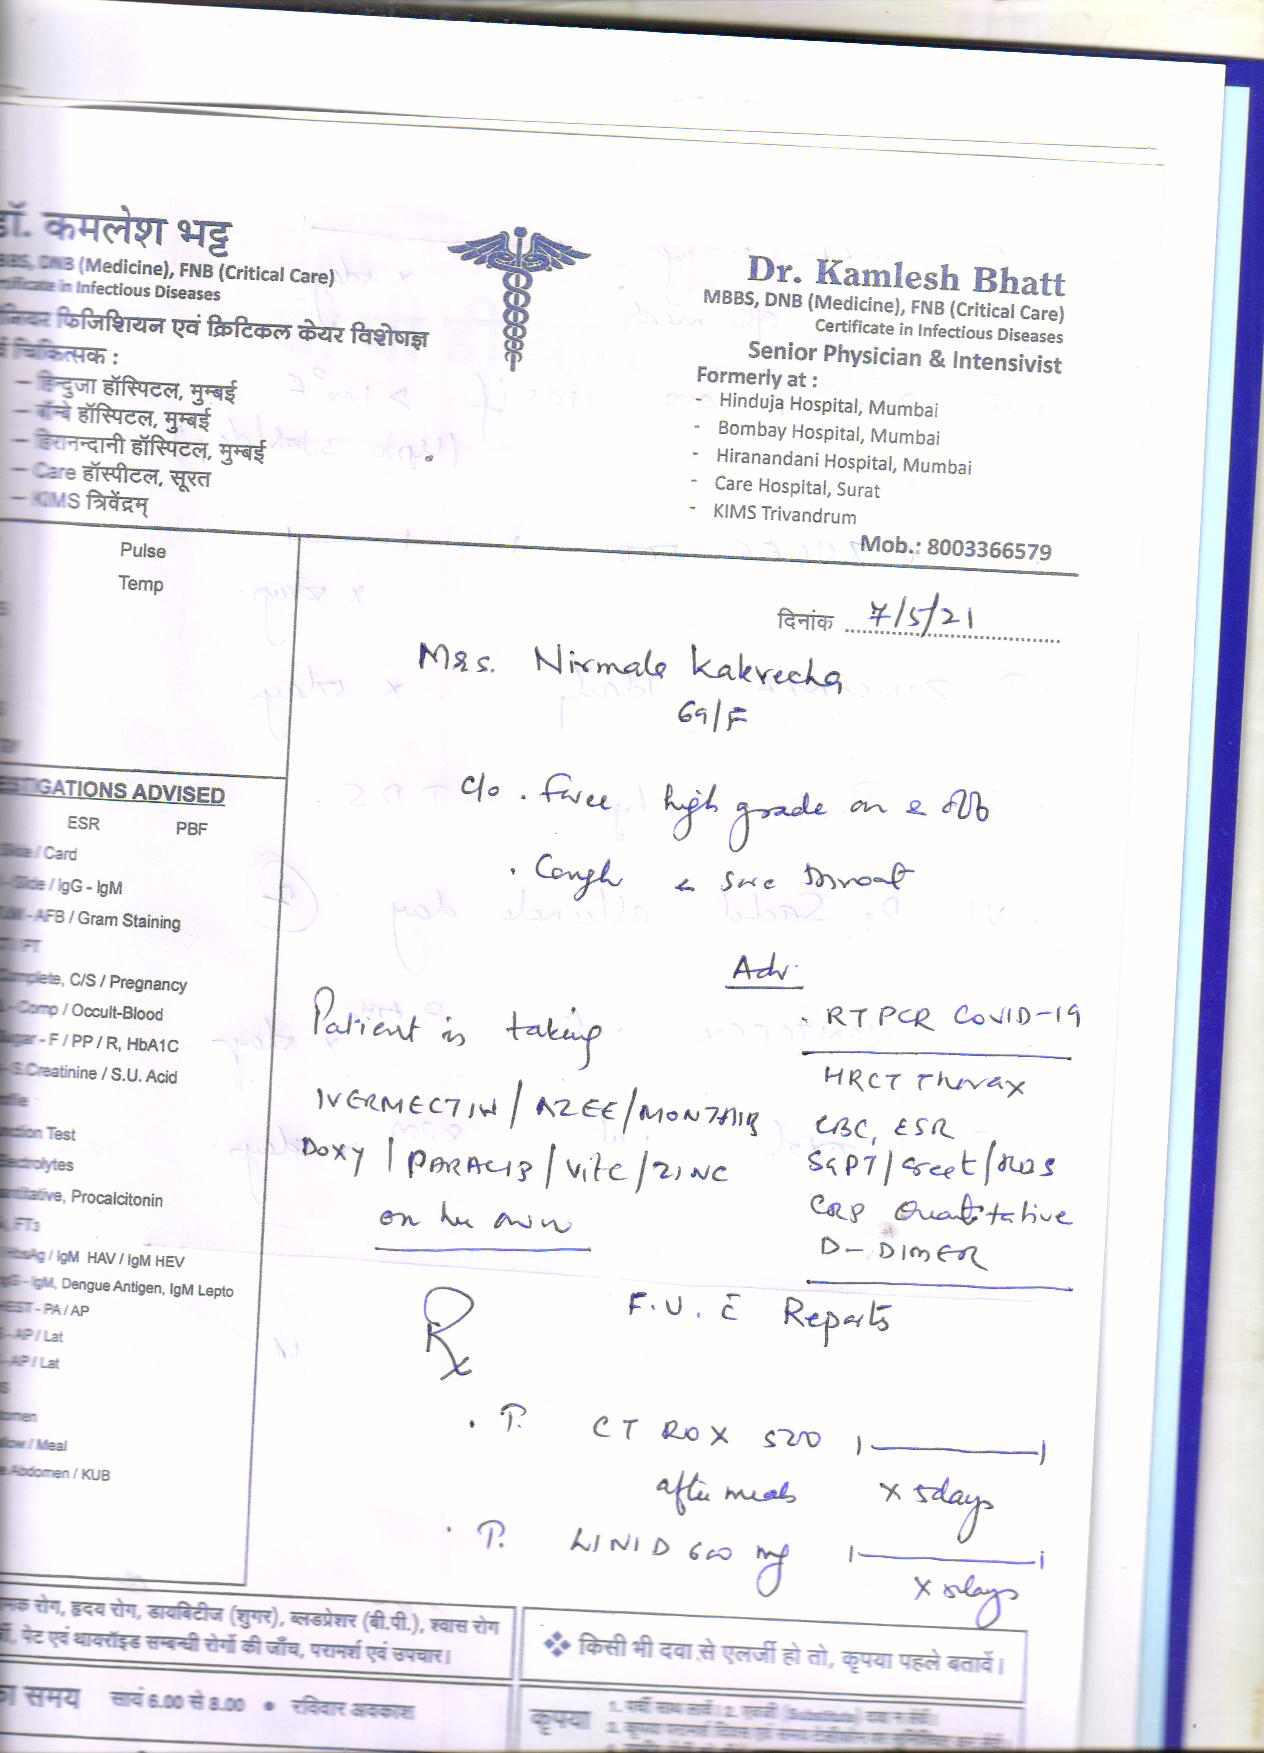 डॉ. कमलेश भट्ट
BBS, DNB (Medicine), FNB (Critical Care)
Certificate in Infectious Diseases
नियर फिजिशियन एवं क्रिटिकल केयर विशेषज्ञ
र्व चिकित्सक :
– हिन्दुजा हॉस्पिटल, मुम्बई
– बॉम्बे हॉस्पिटल, मुम्बई
– हिरानन्दानी हॉस्पिटल, मुम्बई
– Care हॉस्पीटल, सूरत
– KIMS त्रिवेंद्रम्
Dr. Kamlesh Bhatt
MBBS, DNB (Medicine), FNB (Critical Care)
Certificate in Infectious Diseases
Senior Physician & Intensivist
Formerly at :
- Hinduja Hospital, Mumbai
- Bombay Hospital, Mumbai
- Hiranandani Hospital, Mumbai
- Care Hospital, Surat
- KIMS Trivandrum
Mob.: 8003366579
Pulse
Temp
दिनांक 7/5/21
Mrs. Nirmala Kakrecha
69/F
c/o . high grade on &
. Cough & sore throat
Adv.
Patient is taking
IVERMECTIN / AZEE / MONTAIR
DOXY / PARACIP / VitC / ZINC
on her own
. RTPCR COVID-19
HRCT Thorax
CBC, ESR
SGPT / Creat / RBS
CRP Quantitative
D-DIMER
F.U. c̄ Reports
Rx
. T. CTROX 500 1——1
after meals x 5days
. T. LINID 600 mg 1——1
x 5days
TIGATIONS ADVISED
ESR PBF
Slide / Card
- Slide / IgG - IgM
- AFB / Gram Staining
/ PT
Complete, C/S / Pregnancy
- Comp / Occult-Blood
Sugar - F / PP / R, HbA1C
- S.Creatinine / S.U. Acid
ofile
nction Test
Electrolytes
antitative, Procalcitonin
, FT3
HbsAg / IgM HAV / IgM HEV
IgG - IgM, Dengue Antigen, IgM Lepto
HEST - PA / AP
- AP / Lat
- AP / Lat
domen
llow / Meal
e Abdomen / KUB
नक रोग, हृदय रोग, डायबिटीज (शुगर), ब्लडप्रेशर (बी.पी.), श्वास रोग
र्मी, पेट एवं थायरॉइड सम्बन्धी रोगों की जाँच, परामर्श एवं उपचार।
का समय सायं 6.00 से 8.00 • रविवार अवकाश
❖ किसी भी दवा से एलर्जी हो तो, कृपया पहले बतावें।
कृपया
1. पर्ची साथ लावें। 2. (Substitute) दवा न लेवें।